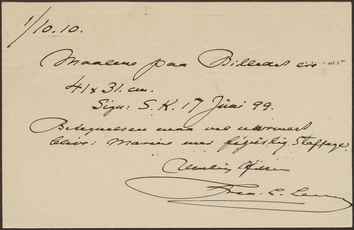 1/10.10.
Maalene paa Billedet er
41 x 31. cm.
Sign: S. K. 17 Juni 99.
Betegnelsen maa vel nærmest
blive: Marine med figürlig Staffage.
Venlig Hilsen